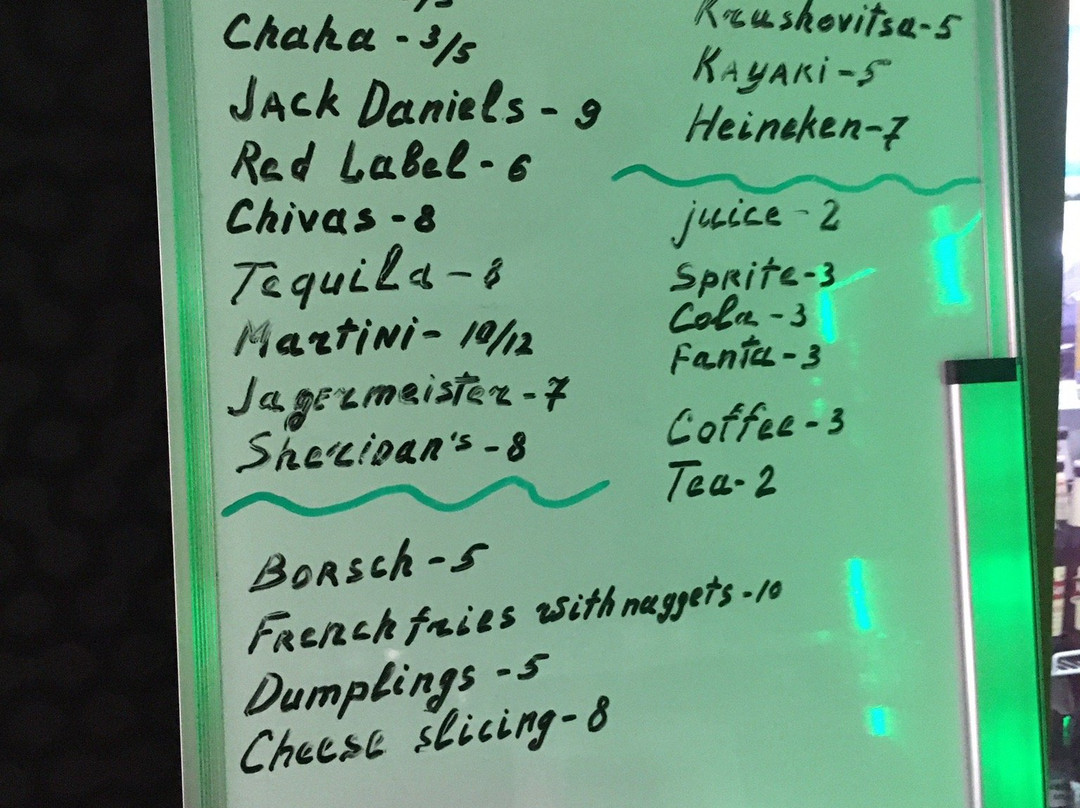 Chaha - 3/5
Jack Daniels - 9
Red Label - 6
Chivas - 8
Tequila - 8
Martini - 10/12
Jagermeister - 7
Sheridan's - 8
Borsch - 5
French fries with nuggets - 10
Dumplings - 5
Cheese slicing - 8
Krushovitsa - 5
Kayaki - 5
Heineken - 7
juice - 2
Sprite - 3
Cola - 3
Fanta - 3
Coffee - 3
Tea - 2